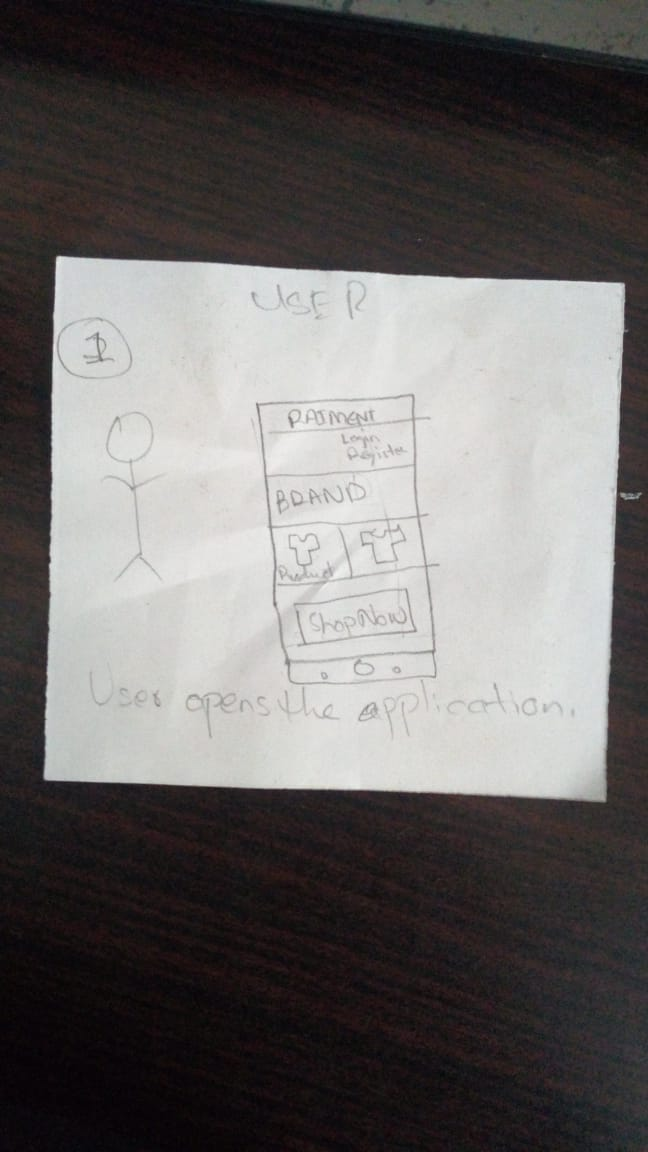 USER
1
RAIMENT
Login
Register
BRAND
Product
Shop Now
User opens the application.